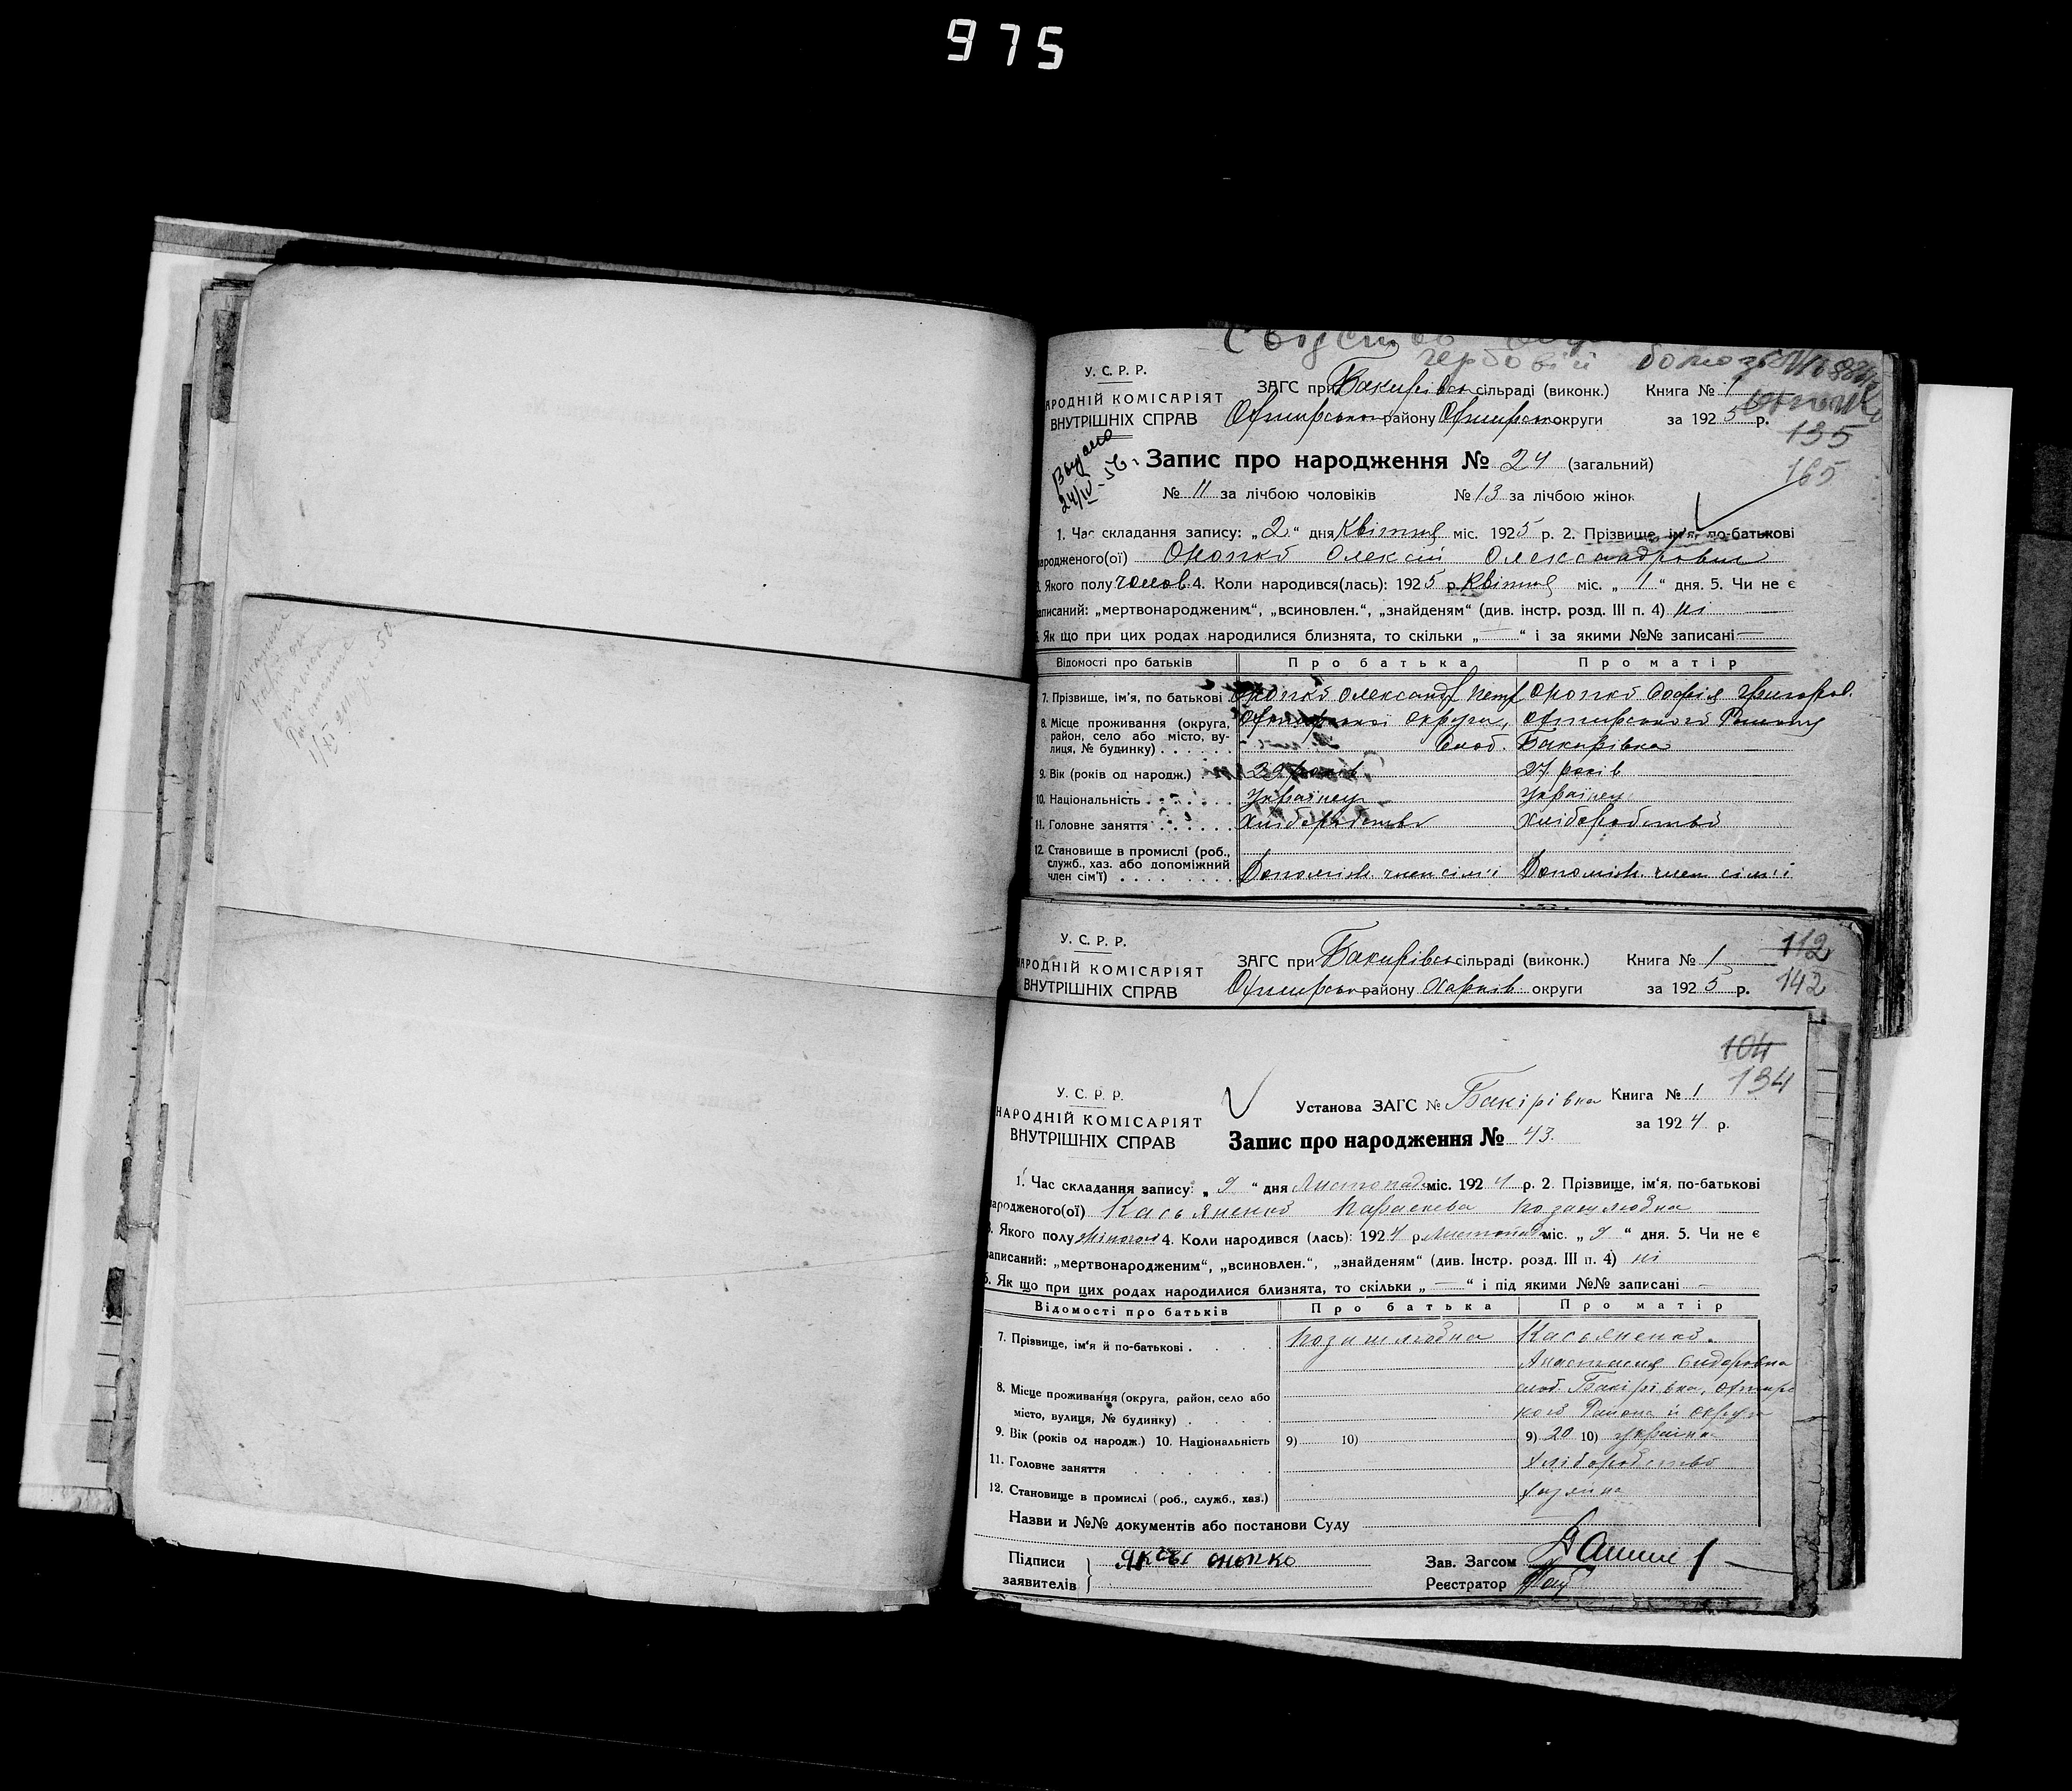 975
У. С. Р. Р.
АРОДНІЙ КОМІСАРІЯТ
ВНУТРІШНІХ СПРАВ
ЗАГС при Бакирівськ сільраді (виконк.) Книга № 1
Охтирського району Охтирськ округи за 1925 р.
135
165
Выдано
24/IV-56г.
Запис про народження № 24 (загальний)
№ 11 за лічбою чоловіків № 13 за лічбою жінок
1. Час складання запису: „2“ дня Квітня міс. 1925 р. 2. Прізвище, ім'я, по-батькові
народженого(ої) Онопко Олексій Олександрович
3. Якого полу чолов. 4. Коли народився(лась): 1925 р. Квітня міс. „1“ дня. 5. Чи не є
записаний: „мертвонародженим“, „всиновлен.“, „знайденям“ (див. інстр. розд. III п. 4) ні
6. Як що при цих родах народилися близнята, то скільки „—“ і за якими №№ записані —
Відомості про батьків Про батька Про матір
7. Прізвище, ім'я, по батькові . Онопко Олександр Петр Онопко Софія Григоров.
8. Місце проживання (округа, район, село або місто, вулиця, № будинку) . . . . . . Охтирської округи, Охтирського Району
Слоб. Бакирівка
9. Вік (років од народж.) 29 років 27 років
10. Національність . . . . . . . Українец Українец
11. Головне заняття . . . . . . Хліборобство Хліборобство
12. Становище в промислі (роб., служб., хаз. або допоміжний член сім'ї) . . . . . . . . . Допоміж. член сім'ї Допоміж. член сім'ї
У. С. Р. Р.
НАРОДНІЙ КОМІСАРІЯТ
ВНУТРІШНІХ СПРАВ
ЗАГС при Бакирівськ сільраді (виконк.) Книга № 1
Охтирськ району Харків округи за 1925 р.
112
142
104
134
У. С. Р. Р.
НАРОДНІЙ КОМІСАРІЯТ
ВНУТРІШНІХ СПРАВ
Установа ЗАГС № Бакірівка Книга № 1
за 1924 р.
Запис про народження № 43.
1. Час складання запису: „9“ дня Листопада міс. 1924 р. 2. Прізвище, ім'я, по-батькові
народженого(ої) Касьяненко Параскева позашлюбна
3. Якого полу жіночої 4. Коли народився (лась): 1924 р. Листопада міс. „9“ дня. 5. Чи не є
записаний: „мертвонародженим“, „всиновлен.“, „знайденям“ (див. Інстр. розд. III п. 4) ні
6. Як що при цих родах народилися близнята, то скільки „—“ і під якими №№ записані —
Відомості про батьків Про батька Про матір
7. Прізвище, ім'я й по-батькові . . . . позашлюбна Касьяненко.
Анастасия Сидоровна
8. Місце проживання (округа, район, село або місто, вулиця, № будинку) . . . . слоб. Бакірівка, Охтирс
кого Района й округи
9. Вік (років од народж.) 10. Національність 9) 10) 9) 20 10) українка
11. Головне заняття . . . . . . Хліборобство
12. Становище в промислі (роб., служб., хаз.) Хазяйка
Назви и №№ документів або постанови Суду
Підписи заявителів Онопко
Зав. Загсом
Реєстратор